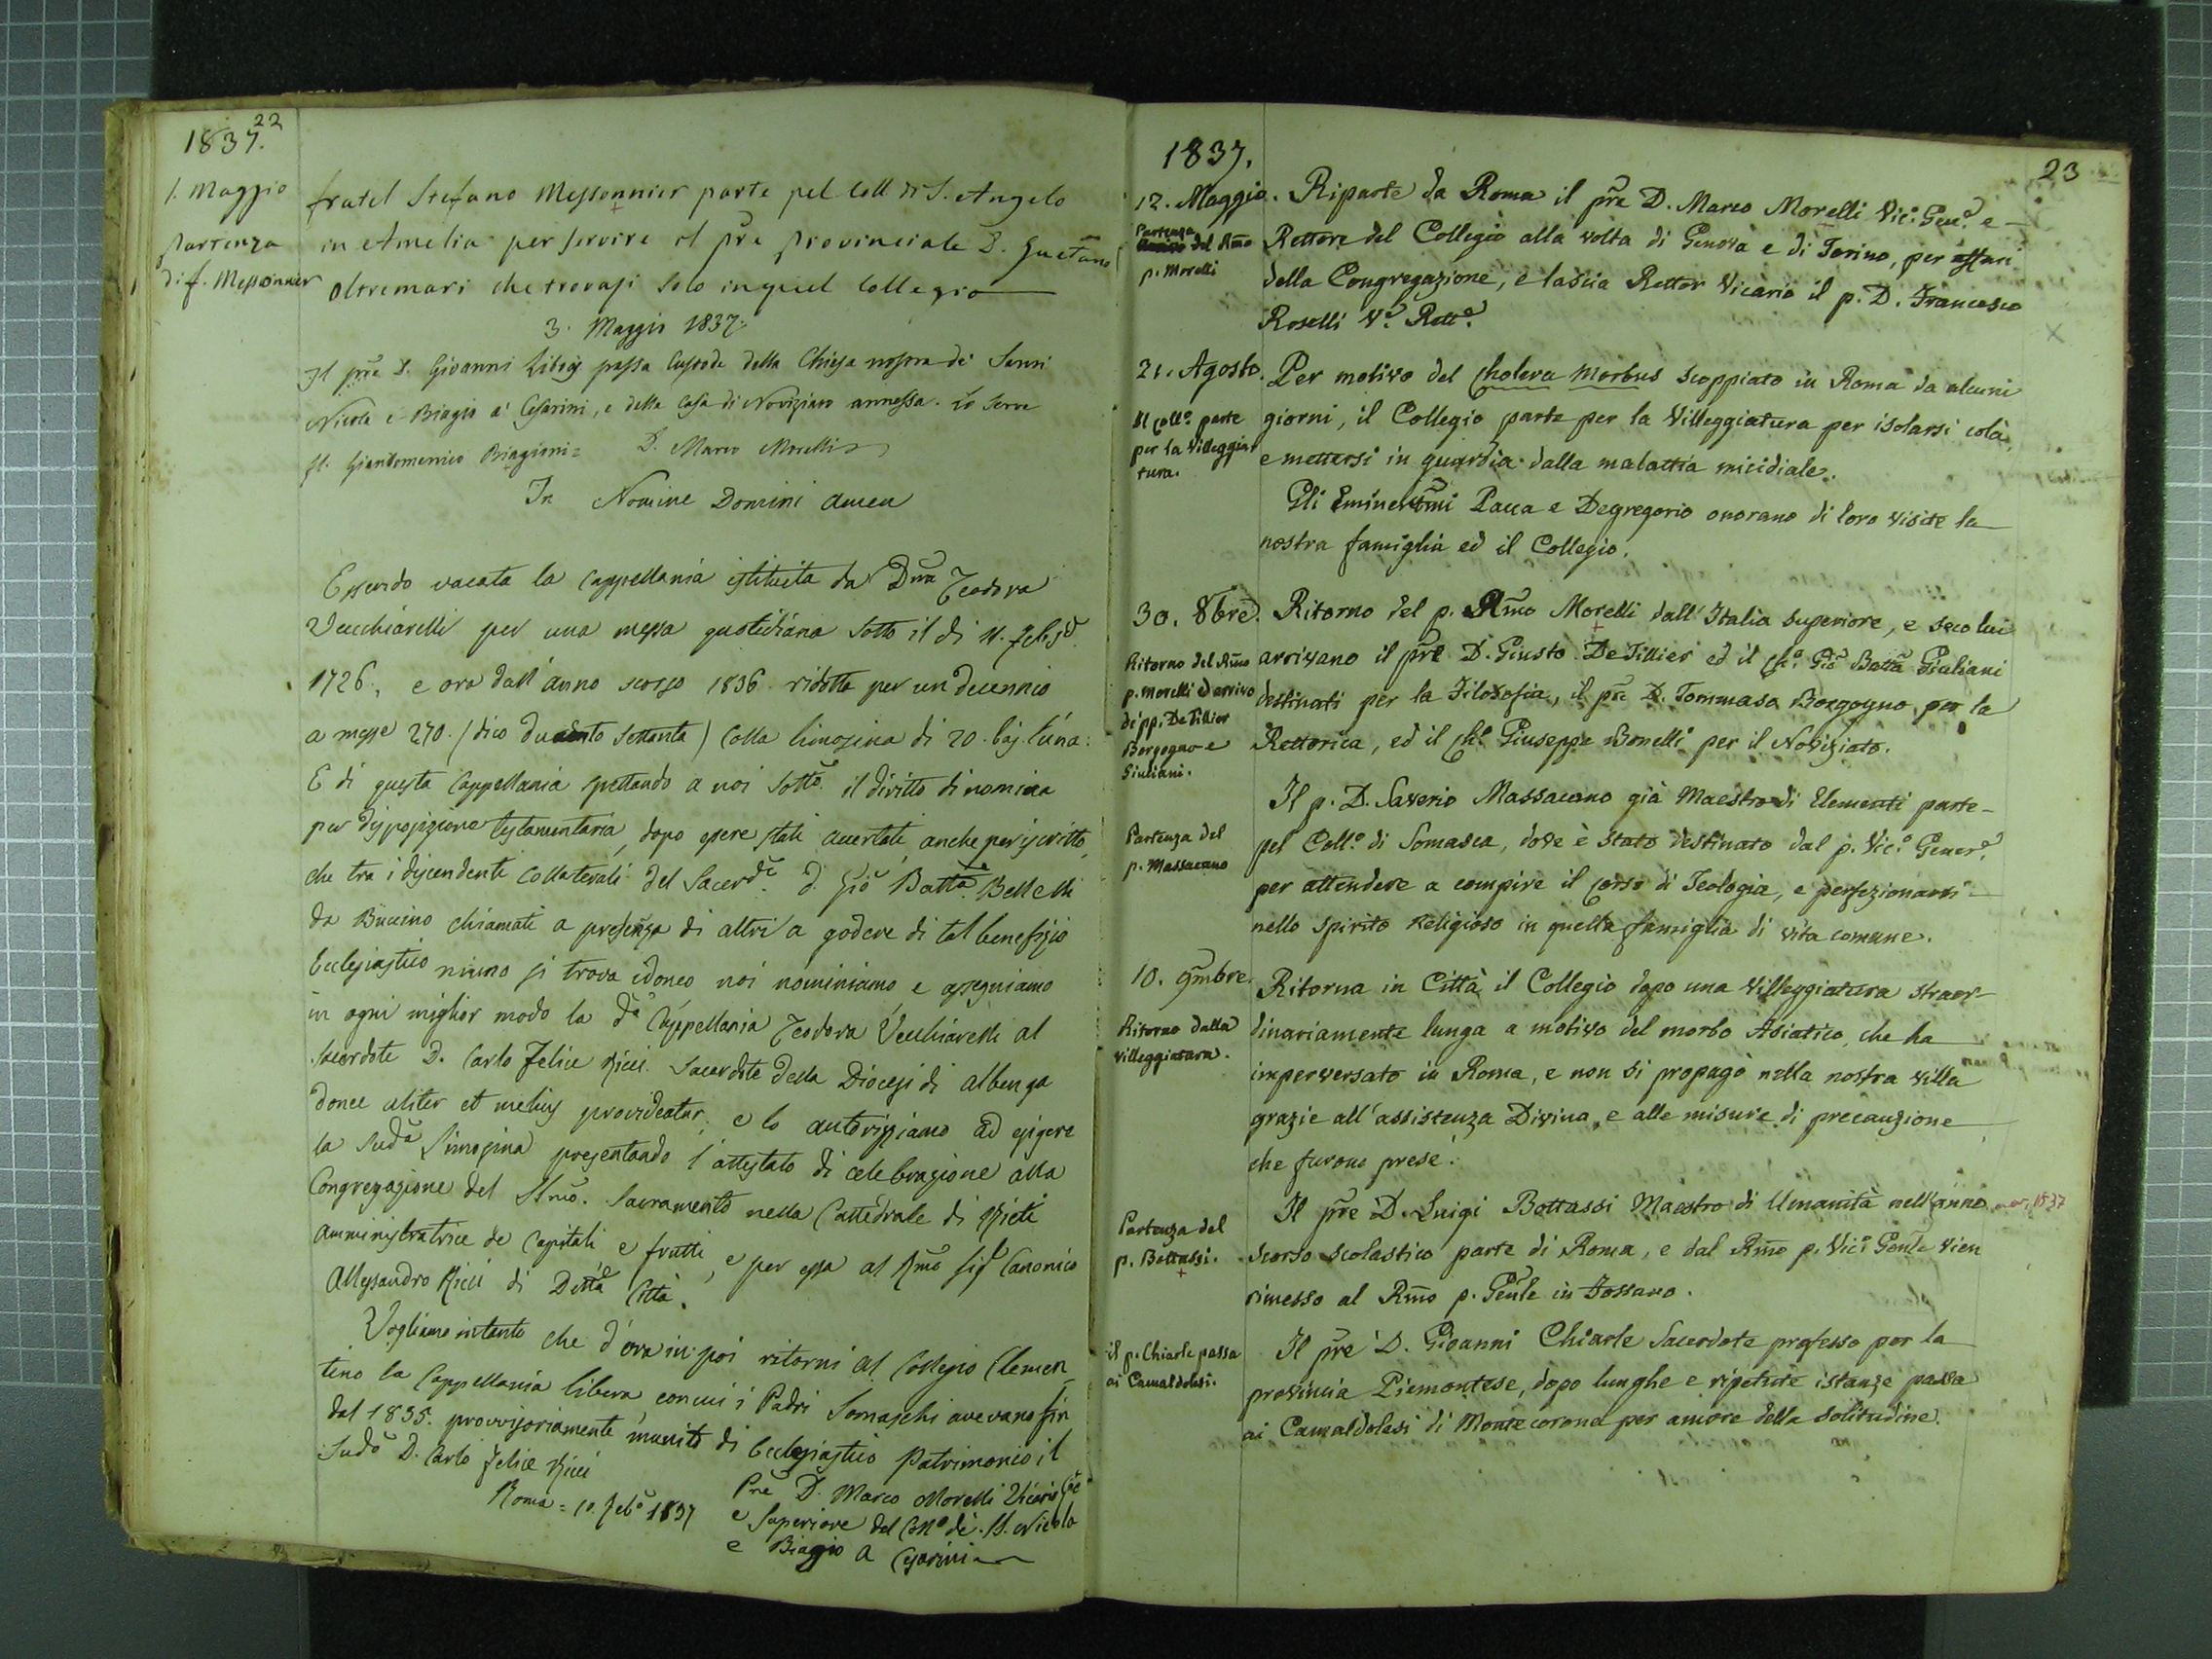 22
1837.
1. Maggio
Partenza
di f. Messonnier
fratel Stefano Messonnier parte pel Coll di S. Angelo
in Amelia per servire il pre Provinciale D. Gaetano
Oltremari che trovasi solo in quel Collegio
3. Maggio 1837.
Il pre D. Giovanni Libois passa Custode della Chiesa nostra dei Santi
Nicola e Biagio a' Cesarini, e della Casa di Noviziato annessa. Lo serve
fl. Giandomenico Biagioni = D. Marco Morelli
In Nomine Domini amen
Essendo vacata la Cappellania istituita da Dna Teodora
Vecchiarelli per una messa quotidiana sotto il di 11. Feb.
1726, e ora dall'anno scorso 1836 ridotta per un decennio
a messe 270. (dico ducento settanta) colla limosina di 20. baj. l'una:
E di questa Cappellania spettando a noi Sotto. il diritto di nomina
per disposizione testamentaria, dopo essere stati accertati anche per iscritto,
che tra i discendenti Collaterali del Sacerde. d. Gio Batta. Bellelli
da Buccino chiamati a presenza di altri a godere di tal benefizio
Ecclesiastico niuno si trova idoneo noi nominiamo e assegniamo
in ogni miglior modo la da Cappellania Teodora Vecchiarelli al
Sacerdote D. Carlo Felice Ricci Sacerdote della Diocesi di Albenga
donec aliter et melius provideatur, e lo autorizziamo ad esigere
la suda limosina presentando l'attestato di celebrazione alla
Congregazione del SSmo. Sacramento nella Cattedrale di Rieti
amministratrice de Capitali e frutti, e per essa al Rmo Sig Canonico
Allessandro Ricci di Detta Città.
Vogliamo intanto che d'ora in poi ritorni al Collegio Clemen
tino la Cappellania libera, con cui i Padri Somaschi avevano fin
dal 1835. provvisoriamente munito di Ecclesiastico Patrimonio il
Sudo D. Carlo Felice Ricci
Roma = 10. Febo 1837
Pre D. Marco Morelli Vicario Gle
e Superiore del Collo dei SS. Nicola
e Biagio a Cesarini
23
1837.
12. Maggio.
Partenza
del Rmo
p. Morelli
Riparte da Roma il pre D. Marco Morelli Vic.o Gen.e e
Rettore del Collegio alla volta di Genova e di Torino, per affari
della Congregazione, e lascia Rettor Vicario il p. D. Francesco
Roselli V.e Rett.e
21. Agosto.
Il Coll.o parte
per la Villeggia
tura.
Per motivo del Cholera Morbus scoppiato in Roma da alcuni
giorni, il Collegio parte per la Villeggiatura per isolarsi colà,
e mettersi in guardia dalla malattia micidiale.
Gli Eminentmi Pacca e Degregorio onorano di loro visite la
nostra famiglia ed il Collegio.
30. 8bre.
Ritorno del Rmo
p. Morelli ed arrivo
de' pp. De Tillier
Borgogno e
Giuliani.
Ritorno del p. Rmo Morelli dall'Italia superiore, e seco lui
arrivano il pre D. Giusto De Tillier ed il Ch.o Gio Batta Giuliani
destinati per la Filosofia, il pre D. Tommaso Borgogno per la
Rettorica, ed il Ch.o Giuseppe Bonelli per il Noviziato.
Partenza del
p. Massacano
Il p. D. Saverio Massacano già Maestro di Elementi parte
pel Coll.o di Somasca, dove è stato destinato dal p. Vic.o Gener.e
per attendere a compire il Corso di Teologia, e perfezionarsi
nello spirito religioso in quella famiglia di vita comune.
10. 9mbre.
Ritorno dalla
villeggiatura.
Ritorna in Città il Collegio dopo una Villeggiatura straor-
dinariamente lunga a motivo del morbo Asiatico, che ha
imperversato in Roma, e non si propagò nella nostra villa
grazie all'assistenza Divina, e alle misure di precauzione
che furono prese.
Partenza del
p. Bottassi.
Il pre D. Luigi Bottassi Maestro di Umanità nell'anno
scorso scolastico parte di Roma, e dal Rmo p. Vic.o Genle vien
rimesso al Rmo p. Genle in Fossano.
1837
il p. Chiarle passa
ai Camaldolesi.
Il pre D. Giovanni Chiarle Sacerdote professo per la
provincia Piemontese, dopo lunghe e ripetute istanze passa
ai Camaldolesi di Montecorona per amore della solitudine.